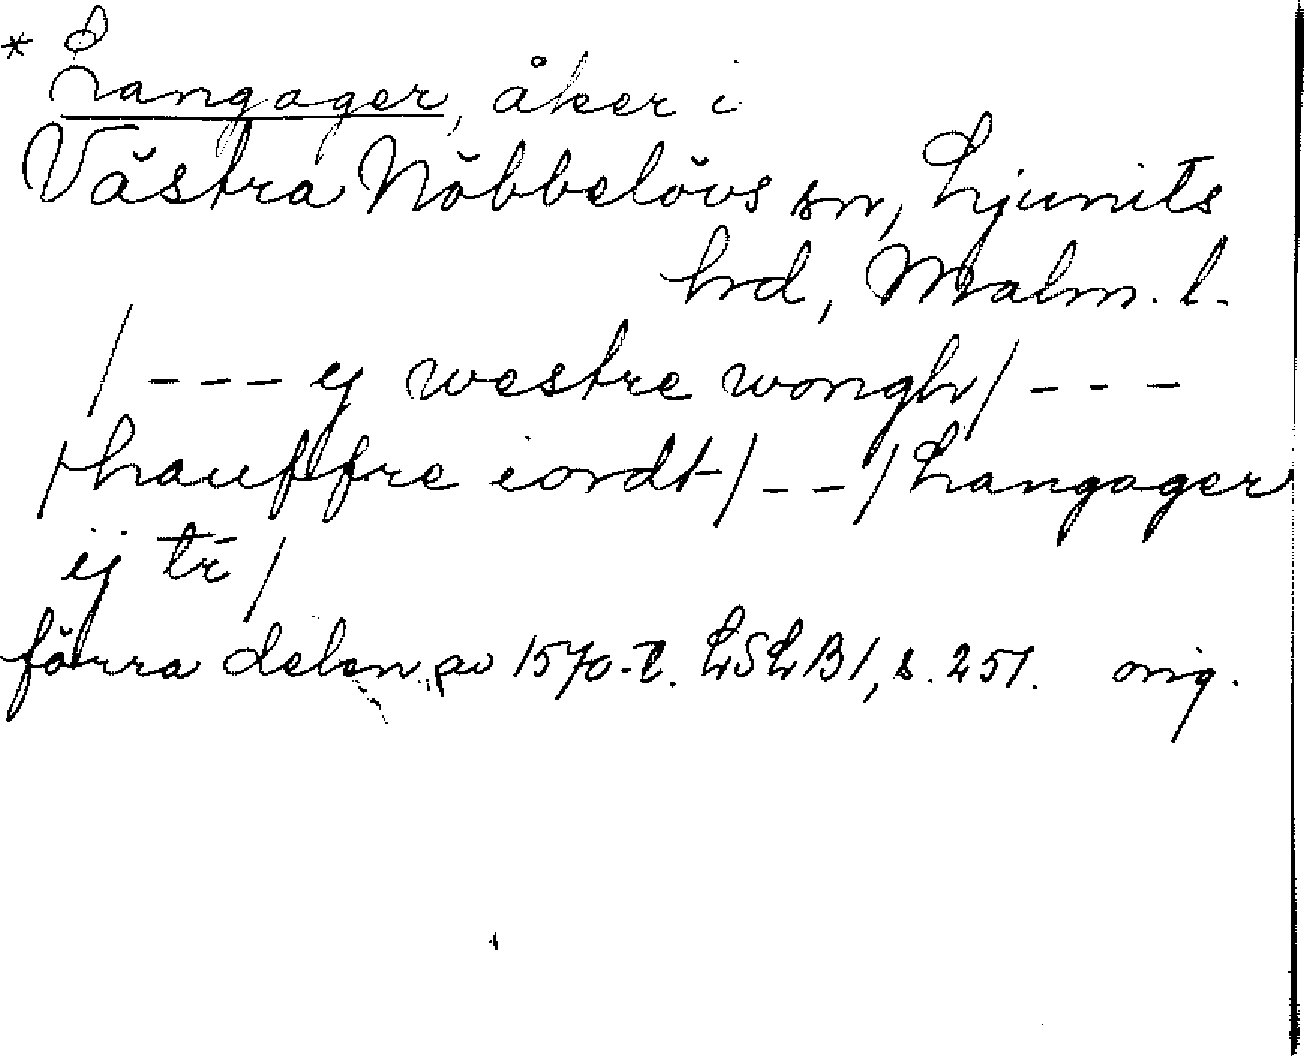 * Langager, åker i
Västra Nöbbelövs sn, Ljunits
hrd, Malm. l.
/ - - - ej westre wongh / - - -
/ hauffre iordt / - - / Langager
ij tr /
förra delen av 1570-t. LSLB1, s. 251. orig.